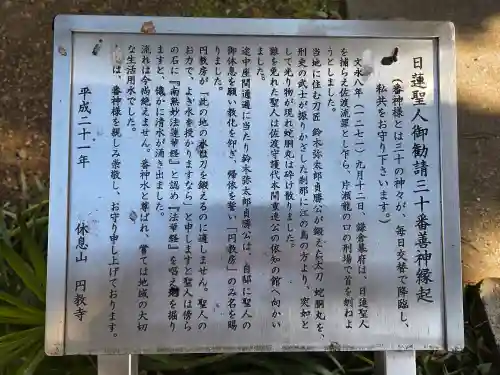 日蓮聖人御勧請三十番善神縁起
(番神様とは三十の神々が、毎日交替で降臨し、
私共をお守り下さいます。)
文永八年(一二七一)九月十二日、鎌倉幕府は、日蓮聖人
を捕らえ佐渡流罪とし乍ら、片瀬龍の口の刑場で首を刎ねよ
うとしました。
当地に住む刀匠 鈴木弥太郎貞勝公が鍛えた太刀 蛇胴丸を、
刑吏の武士が振りかざした刹那に江の島の方より、突如と
して光り物が現れ蛇胴丸は砕け散りました。
難を免れた聖人は佐渡守護代本間重連公の依知の館へ向かい
ました。
途中座間通過に当たり鈴木弥太郎貞勝公は、自邸に聖人の
御休息を願い教化を仰ぎ、帰依を誓い「円教房」のみ名を賜
りました。
円教房が『此の地の水は刀を鍛えるのに適しません。聖人の
お力で、よき水を授かりますなら』と申しますと聖人は傍ら
の石に『南無妙法蓮華経』と認め『法華経』を唱え乍ら掘り
ますと、俄かに清水が涌き出ました。
流れは今尚絶えません。番神水と尊ばれ、嘗ては地域の大切
な生活用水でした。
は、番神様を親しみ崇敬し、お守り申し上げております。
平成二十一年
休息山 円教寺